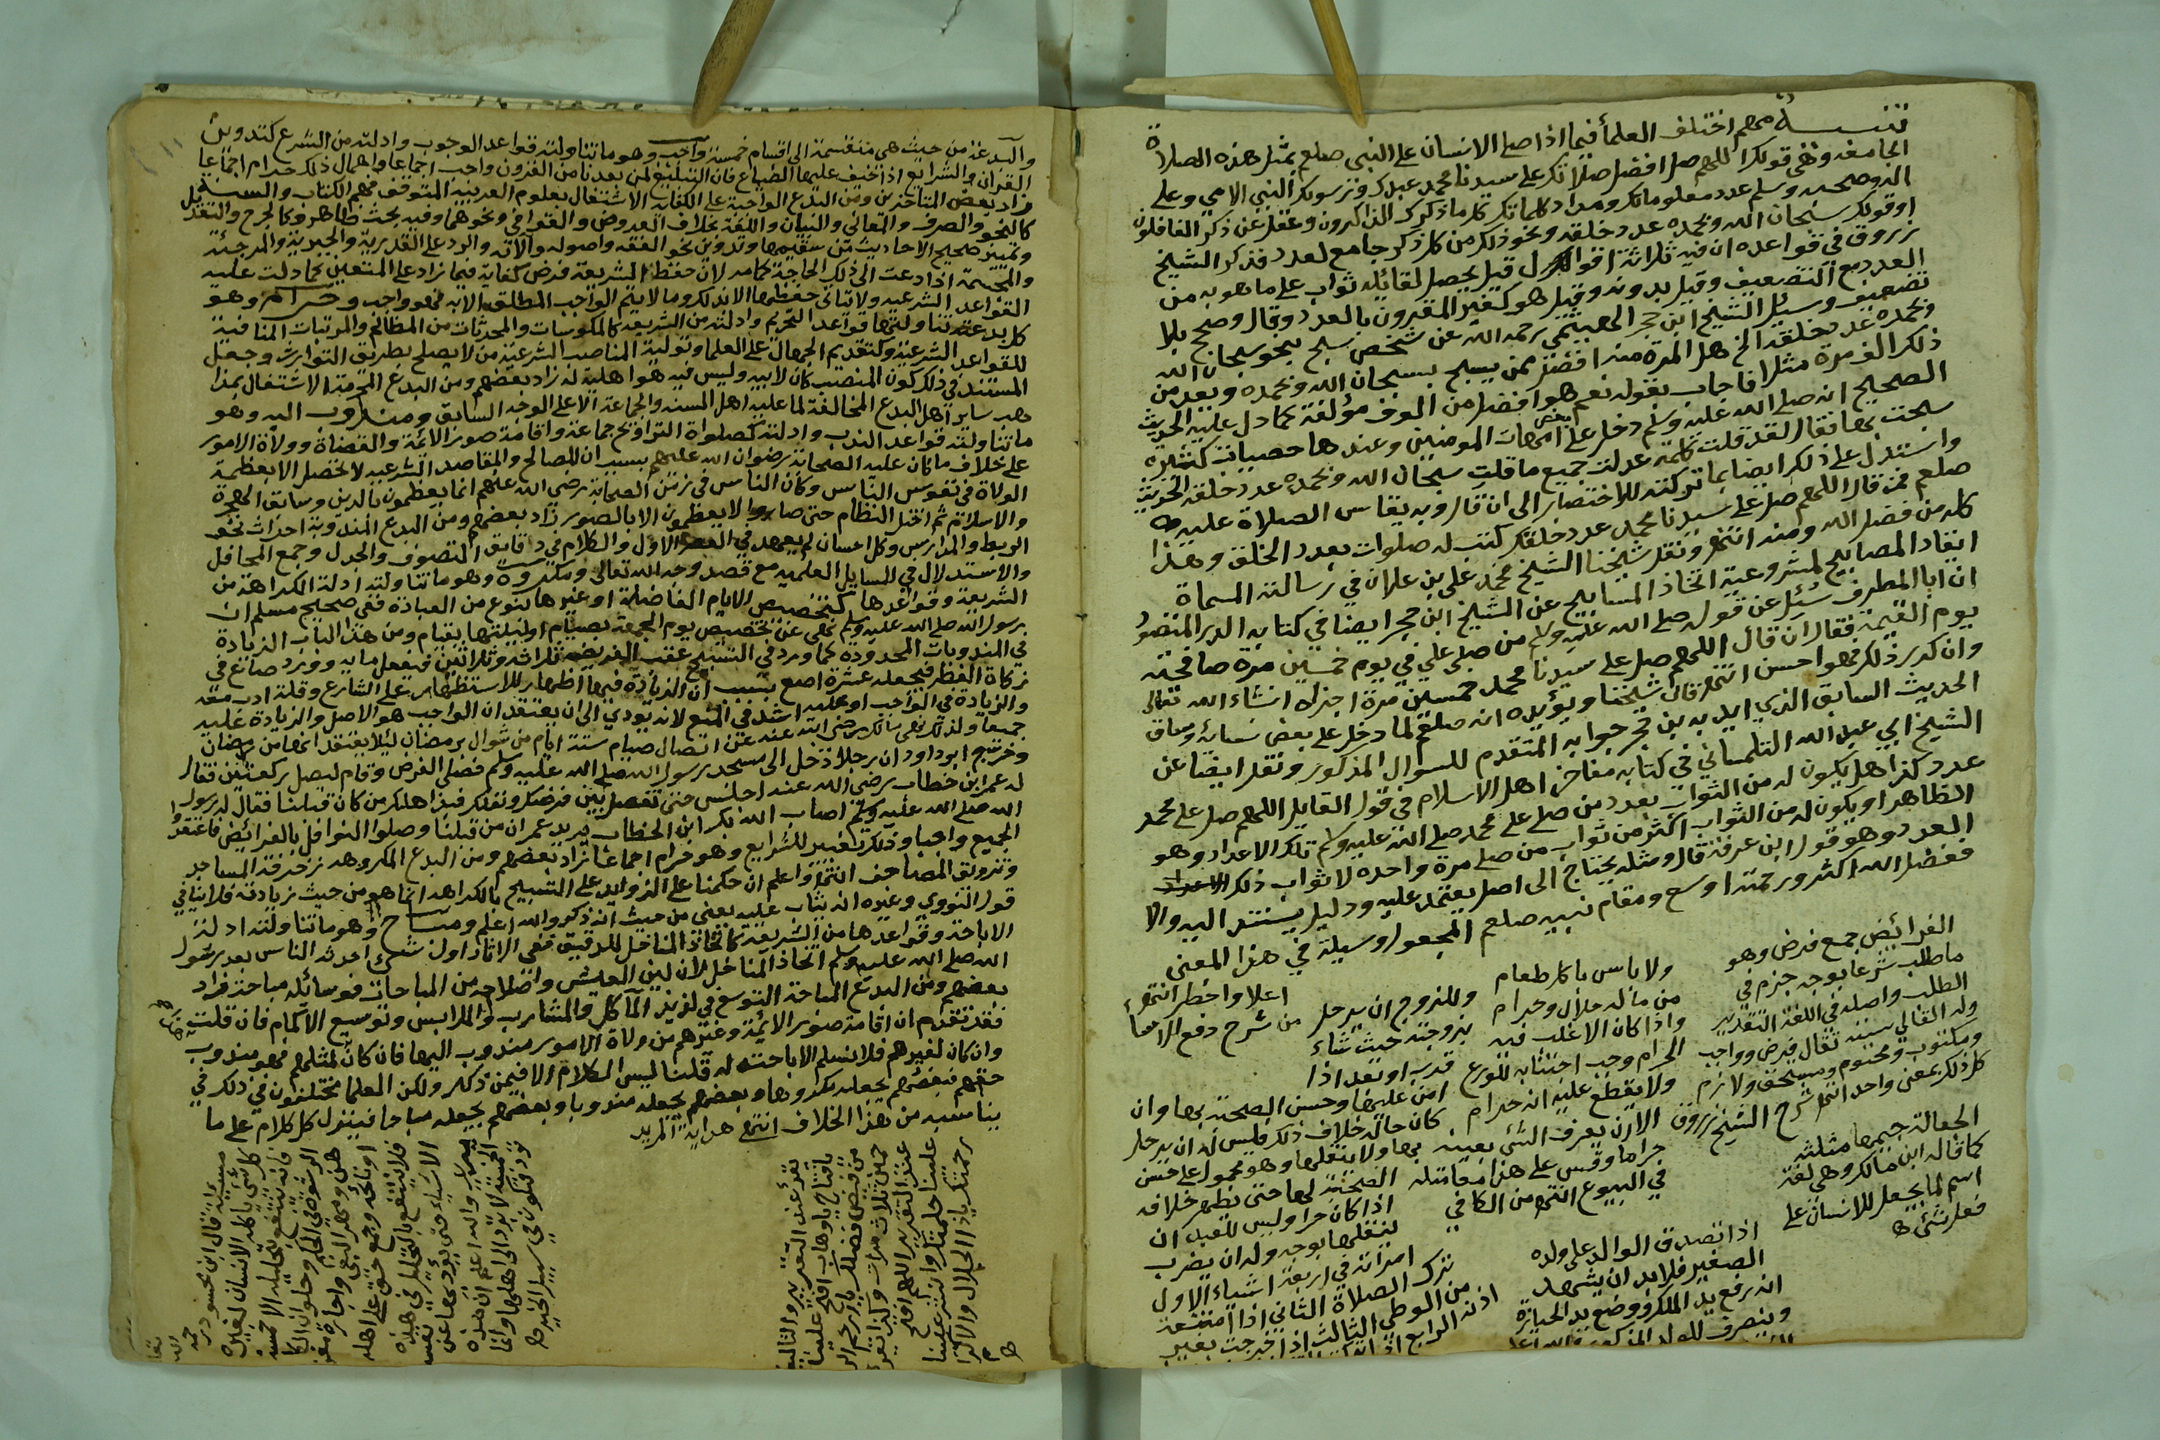 تنبيه مهم اختلف العلمأ فيما اذا صلى الانسان على النبي صلعم بمثل هذه الصلاة
الجامعة وهي قولك اللهم صل افضل صلاتك على سيدنا محمد عبدك ورسولك النبي الامي وعلى
اله وصحبه وسلم عدد معلوماتك ومداد كلماتك كلما ذكرك الذاكرون وغفل عن ذكر الغافلون
او قولك سبحان الله وبحمده عدد خلقه ونحو ذلك من كل ذكر جامع لعدد فذكر الشيخ
زروق في قواعده ان فيه ثلاثة اقوال قيل يحصل لقائله ثواب على ما هو به من
العدد مع التضعيف وقيل بدونه وقيل هو كغير المقرون بالعدد وقال وصحح بلا
تضعيف وسئل الشيخ ابن حجر الهيتمي رحمه الله عن شخص سبح بنحو سبحان الله
وبحمده عدد خلقه الخ هل المرة منه افضل ممن يسبح بسبحان الله وبحمده ويعد من
ذكر الف مرة مثلا فاجاب بقوله نعم هو افضل من الوف مؤلفة كما دل عليه الحديث
الصحيح انه صلى الله عليه وسلم دخل على بعض امهات المومنين وعندها حصيات كثيرة
سبحت بها فقال لقد قلت كلمة عدلت جميع ما قلت سبحان الله وبحمده عدد خلقه الحديث
واستدل على ذلك ايضا بما تركته للاختصار الى ان قال وبه يقاس الصلاة عليه
صلعم فمن قال اللهم صل على سيدنا محمد عدد خلقك كتب له صلوات بعدد الخلق وهذا
كله من فضل الله ومنه انتهى ونقل شيخنا الشيخ محمد علي بن علان في رسالته المسماة
ايقاد المصابيح لمشروعية اتخاذ المسابيح عن الشيخ ابن حجر ايضا في كتابه الدر المنضود
ان ابا المطرف سئل عن قول صلى الله عليه وسلم من صلى علي في يوم خمسين مرة صافحته
يوم القيمة فقال ان قال اللهم صل على سيدنا محمد خمسين مرة اجزاه انشاء الله تعالى
وان كرر ذلك فهو احسن انتهى قال شيخنا ويؤيده انه صلعم لما دخل على بعض نسائه وساق
الحديث السابق الذي ايد به بن حجر جوابه المتقدم للسوال المذكور ونقل ايضا عن
الشيخ ابي عبد الله التلمساني في كتابه مفاخر اهل الاسلام في قول القايل اللهم صل على محمد
عدد كذا هل يكون له من الثواب بعدد من صلى على محمد صلى الله عليه وسلم تلك الاعداد وهو
الظاهر او يكون له من الثواب اكثر من ثواب من صلى مرة واحده لا ثواب ذلك
العدد وهو قول ابن عرفة قال ومثله يحتاج الى اصل يعتمد عليه ودليل يستند اليه والا
ففضل الله اكثر ورحمته اوسع ومقام نبيه صلعم المجعول وسيلة في هذا المعنى
اعلا واخطر انتهى
من شرح دفع الاسا
الفرائض جمع فرض وهو
ما طلب شرعا بوجه جزم في
الطلب واصله في اللغة التقدير
وله القابي ستة تقال فرض وواجب
ومكتوب ومحتوم ومستحق ولازم
كل ذلك بمعنى واحد انتهى شرح الشيخ زروق
الجعالة جيمها مثلثة
كما قاله ابن مالك وهي لغة
اسم لما يجعل للانسان على
فعل شئ
ولا باس باكل طعام
من ماله حلال وحرام
واذا كان الاغلب فيه
الحرام وجب اجتنابه للورع
ولا يقطع عليه انه حرام
الا ان يعرف الشئ بعينه
حراما وقس على هذا معاملته
في البيوع انتهى من الكافي
وللزوج ان يدخل
بزوجته حيث شاء
قرب او بعد اذا
امن عليها وحسن الصحبة بها وان
كان حاله خلاف ذلك فليس له ان يرحل
بها ولا ينقلها وهو محمول على حسن
الصحبة لها حتى يظهر خلافه
اذا كان حرا وليس للعبد ان
ينقلها بوجه وله ان يضرب
امراته في اربعة اشياء الاول
ترك الصلاة الثاني اذا امتنعت
من الوطئ الثالث اذا خرجت بغير
اذا تصدق الوالد على ولده
الصغير فلا بد ان يشهد
انه رفع يد الملك ووضع يد الحيازة
والبدعة من حيث هي منقسمة الى اقسام خمسة واجب وهو ما تناولته قواعد الوجوب وادلته من الشرع كتدوين
القران والشرايع اذا خيف عليها الضياع فان التبليغ لمن بعدنا من القرون واجب اجماعا واهمال ذلك حرام اجماعا
زاد بعض المتاخرين ومن البدع الواجبة على الكفاية الاشتغال بعلوم العربية المتوقف فهم الكتاب والسنة
كالنحو والصرف والمعاني والبيان واللغة بخلاف العروض والقوافي ونحوهما وفيه بحث ظاهر وكالجرح والتعديل
وتمييز صحيح الاحاديث من سقيمها وتدوين نحو الفقه واصوله والاته والرد على القدرية والجبرية والمرجئة
والمجسمة اذا دعت الى ذلك الحاجة كما مر لان حفظ الشريعة فرض كفاية فيما زاد على المتعين كما دلت عليه
القواعد الشرعيه ولا يتاتى حفظها الا بذلك وما لا يتم الواجب المطلق الا به فهو واجب وحرام وهو
كل بدعة تناولتها قواعد التحريم وادلته من الشريعة كالمكوسات والمحدثات من المظالم والمرتبات المنافية
للقواعد الشرعية وكتقديم الجهال على العلما وتولية المناصب الشرعية من لا يصلح بطريق التوارث وجعل
المستند في ذلك كون المنصب كان لابيه وليس فيه هو اهلية له زاد بعضهم ومن البدع المحرمة الاشتغال بمذا
هب ساير اهل البدع المخالفة لما عليه اهل السنه والجماعة الا على الوجه السابق ومندوب اليه وهو
ما تناولته قواعد الندب وادلته كصلواة التراويح جماعة واقامة صور الائمة والقضاة وولاة الامور
على خلاف ما كان عليه الصحابة رضوان الله عليهم بسبب ان المصالح والمقاصد الشرعيه لا تحصل الا بعظمة
الولاة في نفوس الناس وكان الناس في زمن الصحابة رضي الله عنهم انما يعظمون بالدين وسابق الهجرة
والاسلام ثم اختل النظام حتى صاروا لا يعظمون الا بالصور زاد بعضهم ومن البدع المندوبة احداث نحو
الربط والمدارس وكل احسان لم يعهد في العصر الاول والكلام في دقايق التصوف والجدل وجمع المحافل
والاستدلال في المسايل العلميه مع قصد وجه الله تعالى ومكروة وهو ما تناولته ادلة الكراهة من
الشريعة وقواعدها كتخصيص الايام الفاضلة او غيرها بنوع من العبادة ففي صحيح مسلم ان
رسول الله صلى الله عليه وسلم نهى عن تخصيص يوم الجمعة بصيام او ليلتها بقيام ومن هذا الباب الزيادة
في المندوبات المحدودة كما ورد في التسبيح عقب الفريضه ثلاثه وثلاثين فيفعل مايه وورد صاع في
زكاة الفطر فيجعله عشرة اصع بسبب ان الزيادة فيها اظهار للاستظهار على الشارع وقلة ادب معه
والزيادة في الواجب او عليه اشد في المنع لانه يودي الى ان يعتقد ان الواجب هو الاصل والزيادة عليه
جميعا ولذلك نهى مالك رضى الله عنه عن اتصال صيام ستة ايام من شوال برمضان ليلا يعتقد انها من رمضان
وخرج ابو داود ان رجلا دخل الى مسجد رسول الله صلى الله عليه وسلم فصلى الفرض وقام ليصل ركعتين فقال
له عمر ابن خطاب رضي الله عنه اجلس حتى تفصل بين فرضك ونفلك فبذا هلك من كان قبلنا فقال له رسول
الله صلى الله عليه وسلم اصاب الله بك ابن الخطاب يريد عمران من قبلنا وصلوا النوافل بالفرائض فاعتقدوا
الجميع واجبا وذلك تغيير للشرايع وهو حرام اجماعا زاد بعضهم ومن البدع المكروهه زخرفة المساجد
وتزويق المصاحف انتهى واعلم ان حكمنا على الزوايد على التسبيح بالكراهه انما هو من حيث زيادته فلا ينافي
قول النووي وغيره انه يثاب عليه يعني من حيث انه ذكر والله اعلم ومباح وهو ما تناولته ادلة
الاباحة وقواعدها من الشريعة كاتخاذ المناخل للدقيق ففي الاثار اول شئ احدثه الناس بعد رسول
الله صلى الله عليه وسلم اتخاذ المناخل لان لين العيش واصلاحه من المباحات فوسائله مباحة زاد
بعضهم ومن البدع المباحة التوسع في لذيذ المآكل والمشارب والملابس وتوسيع الاكمام فان قلت
فقد تقدم ان اقامة صور الائمة وغيرهم من ولاة الامور مندوب اليها فان كان لمثلهم فهو مندوب
وان كان لغيرهم فلا نسلم الاباحته له قلنا ليس الكلام الا فيمن ذكر ولكن العلما مختلفون في ذلك في
حقهم فبعضهم يجعله مكروها وبعضهم يجعله مندوبا وبعضهم يجعله مباحا فينزل كل كلام على ما
يناسبه من هذا الخلاف انتهى هداية المريد